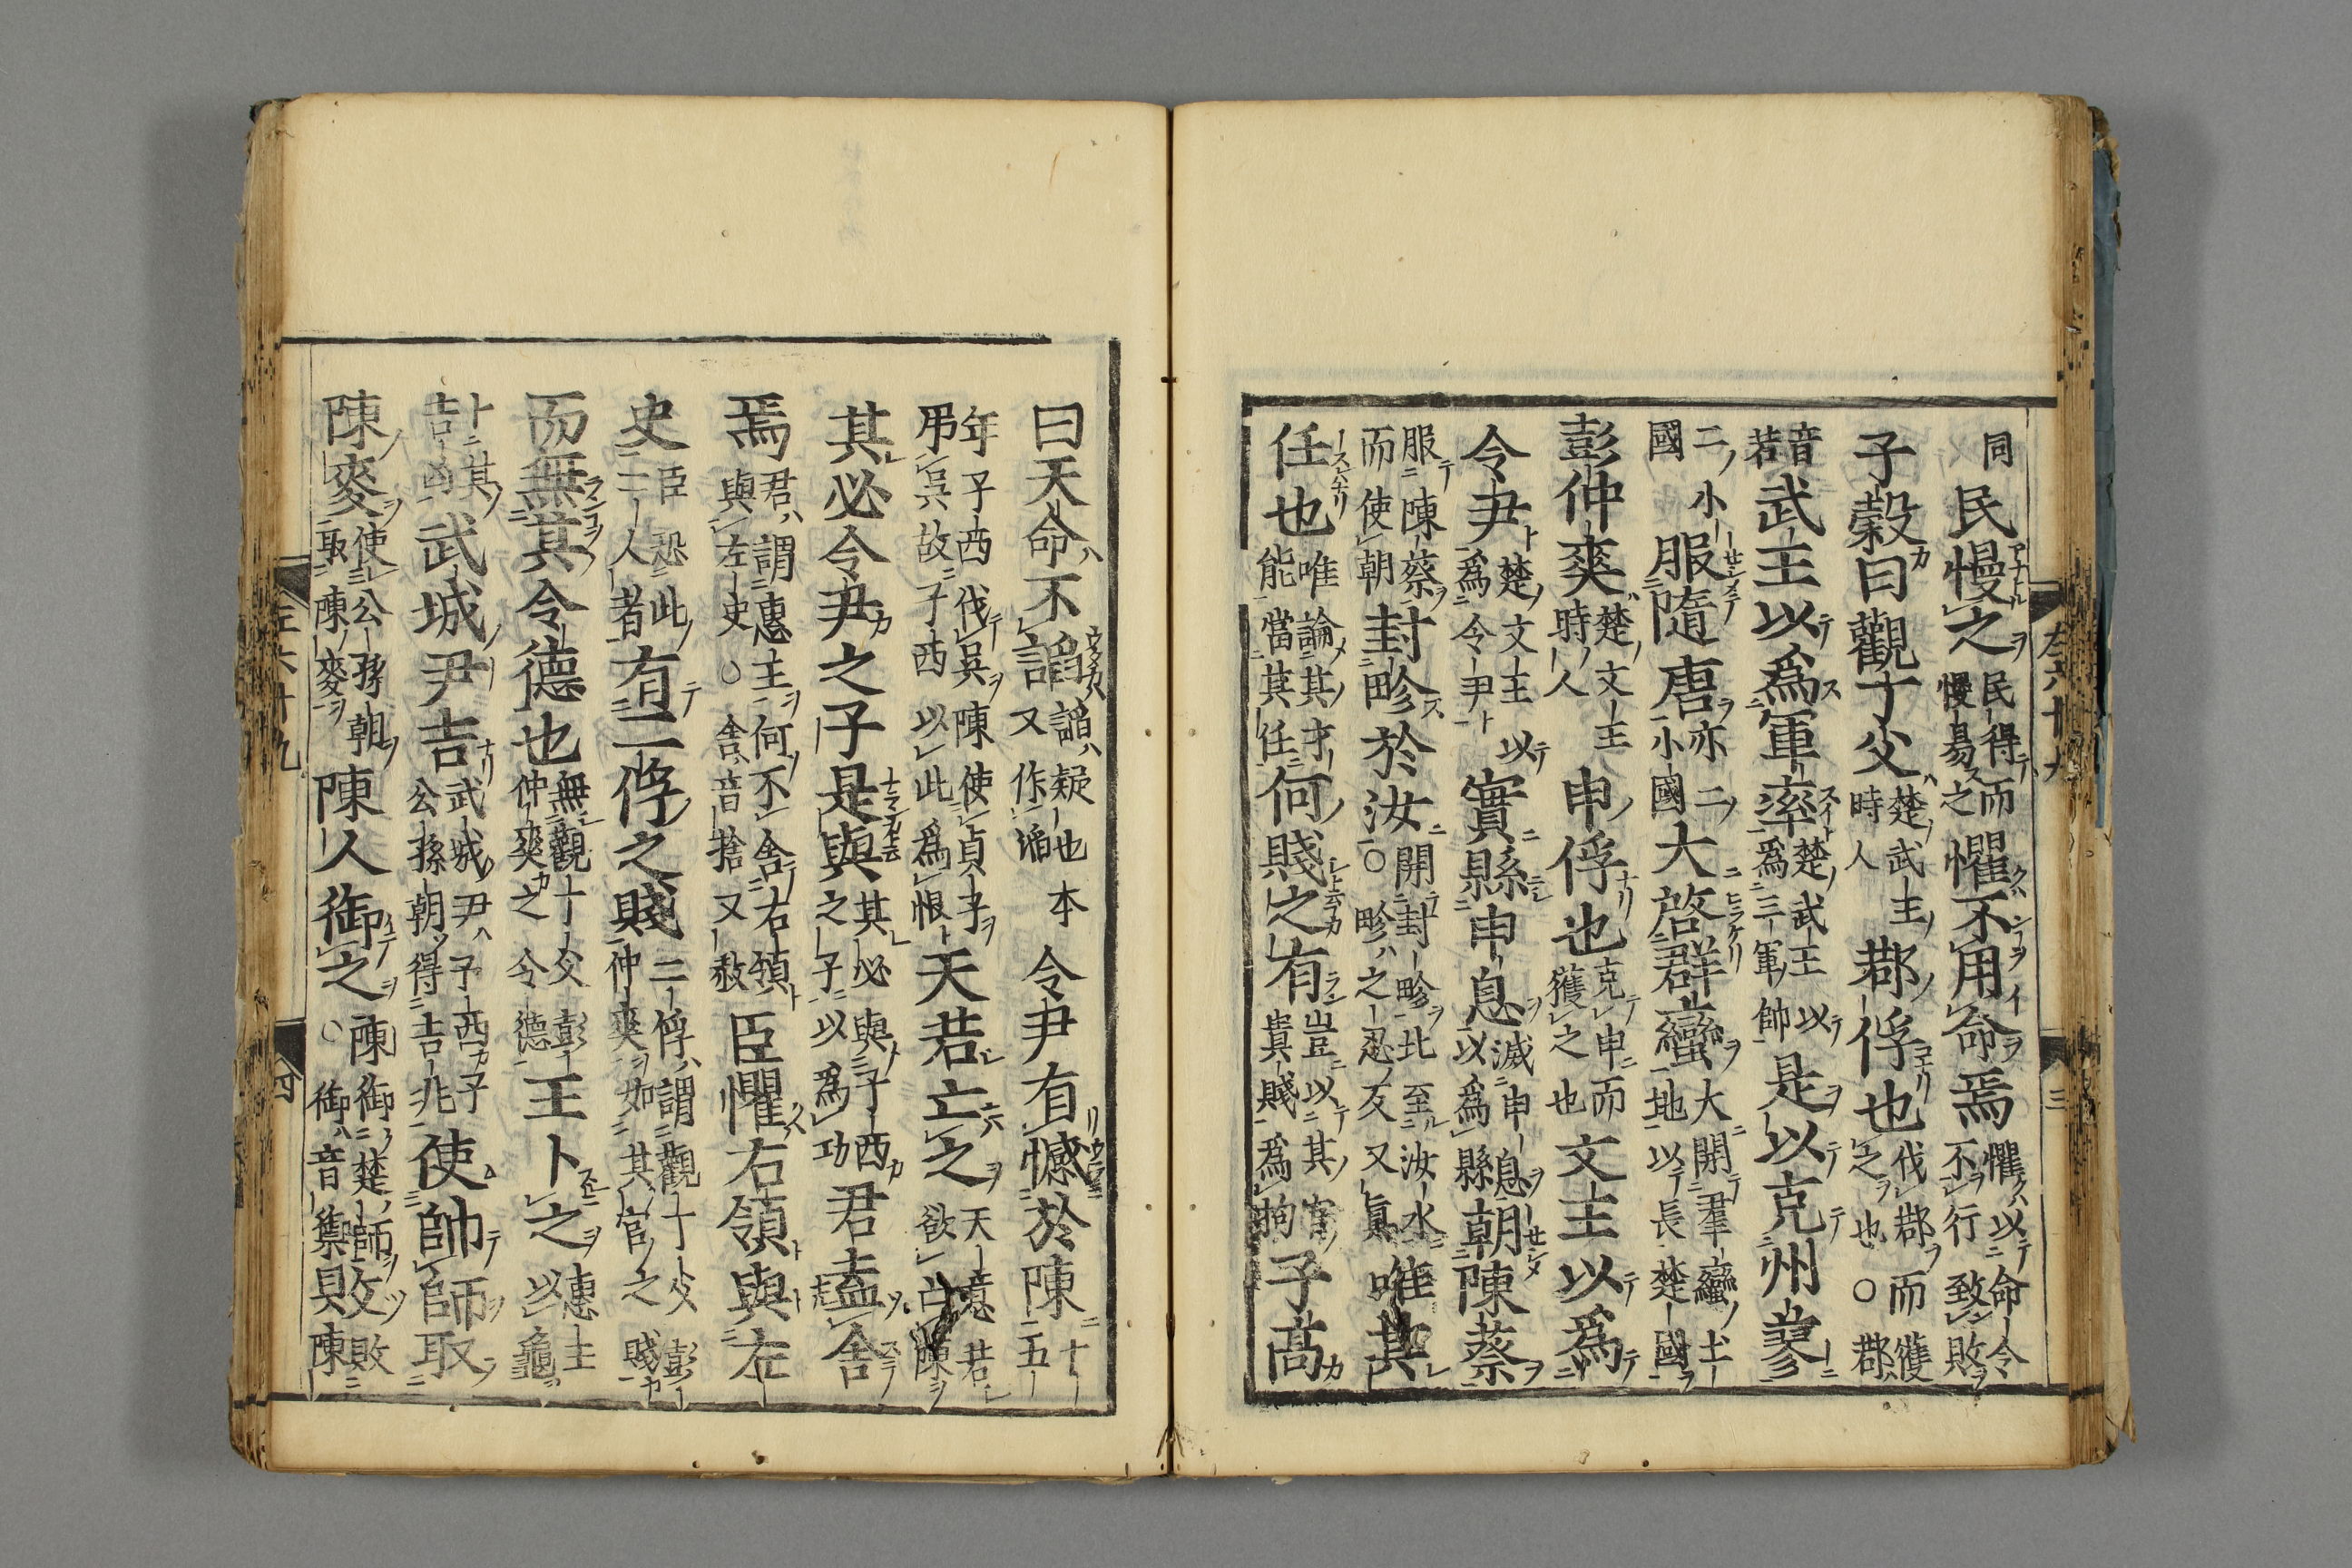 左六十九
三
同民慢之民得而慢易之懼不用命焉懼以命令不行致敗
子穀曰觀丁父楚武王時人鄀俘也伐鄀而獲之也○鄀
音若武王以爲軍率楚武王以爲三軍帥是以克州蓼
二小國服隨唐亦二小國大啓群蠻大開羣蠻土地以長楚國
彭仲爽楚文王時人申俘也克申而獲之也文王以爲
令尹楚文王以爲令尹實縣申息滅申息以爲縣朝陳蔡
服陳蔡而使朝封畛於汝開封畛北至汝水○畛之忍反又眞唯其
任也唯論其才能當其任何賤之有豈以其官貴賤爲拘子髙
曰天命不謟謟疑也本又作滔令尹有憾於陳十五
年子西伐吳陳使貞子弔吳故子西以此爲恨天若亡之天意若欲亡陳
其必令尹之子是與其必與子西之子以爲功君盍舍
焉君謂惠王何不舍右領與左史○舍音捨又赦臣懼右領與左
史臣恐此二人者有二俘之賤二俘謂觀丁父彭仲爽如其官之賤
而無其令德也無觀丁父彭仲爽之令德王卜之惠王以龜
卜其吉凶武城尹吉武城尹子西子公孫朝得吉兆使帥師取
陳麥使公孫朝取陳麥陳人御之陳御楚師○御音禦敗敗陳
左六十九
四